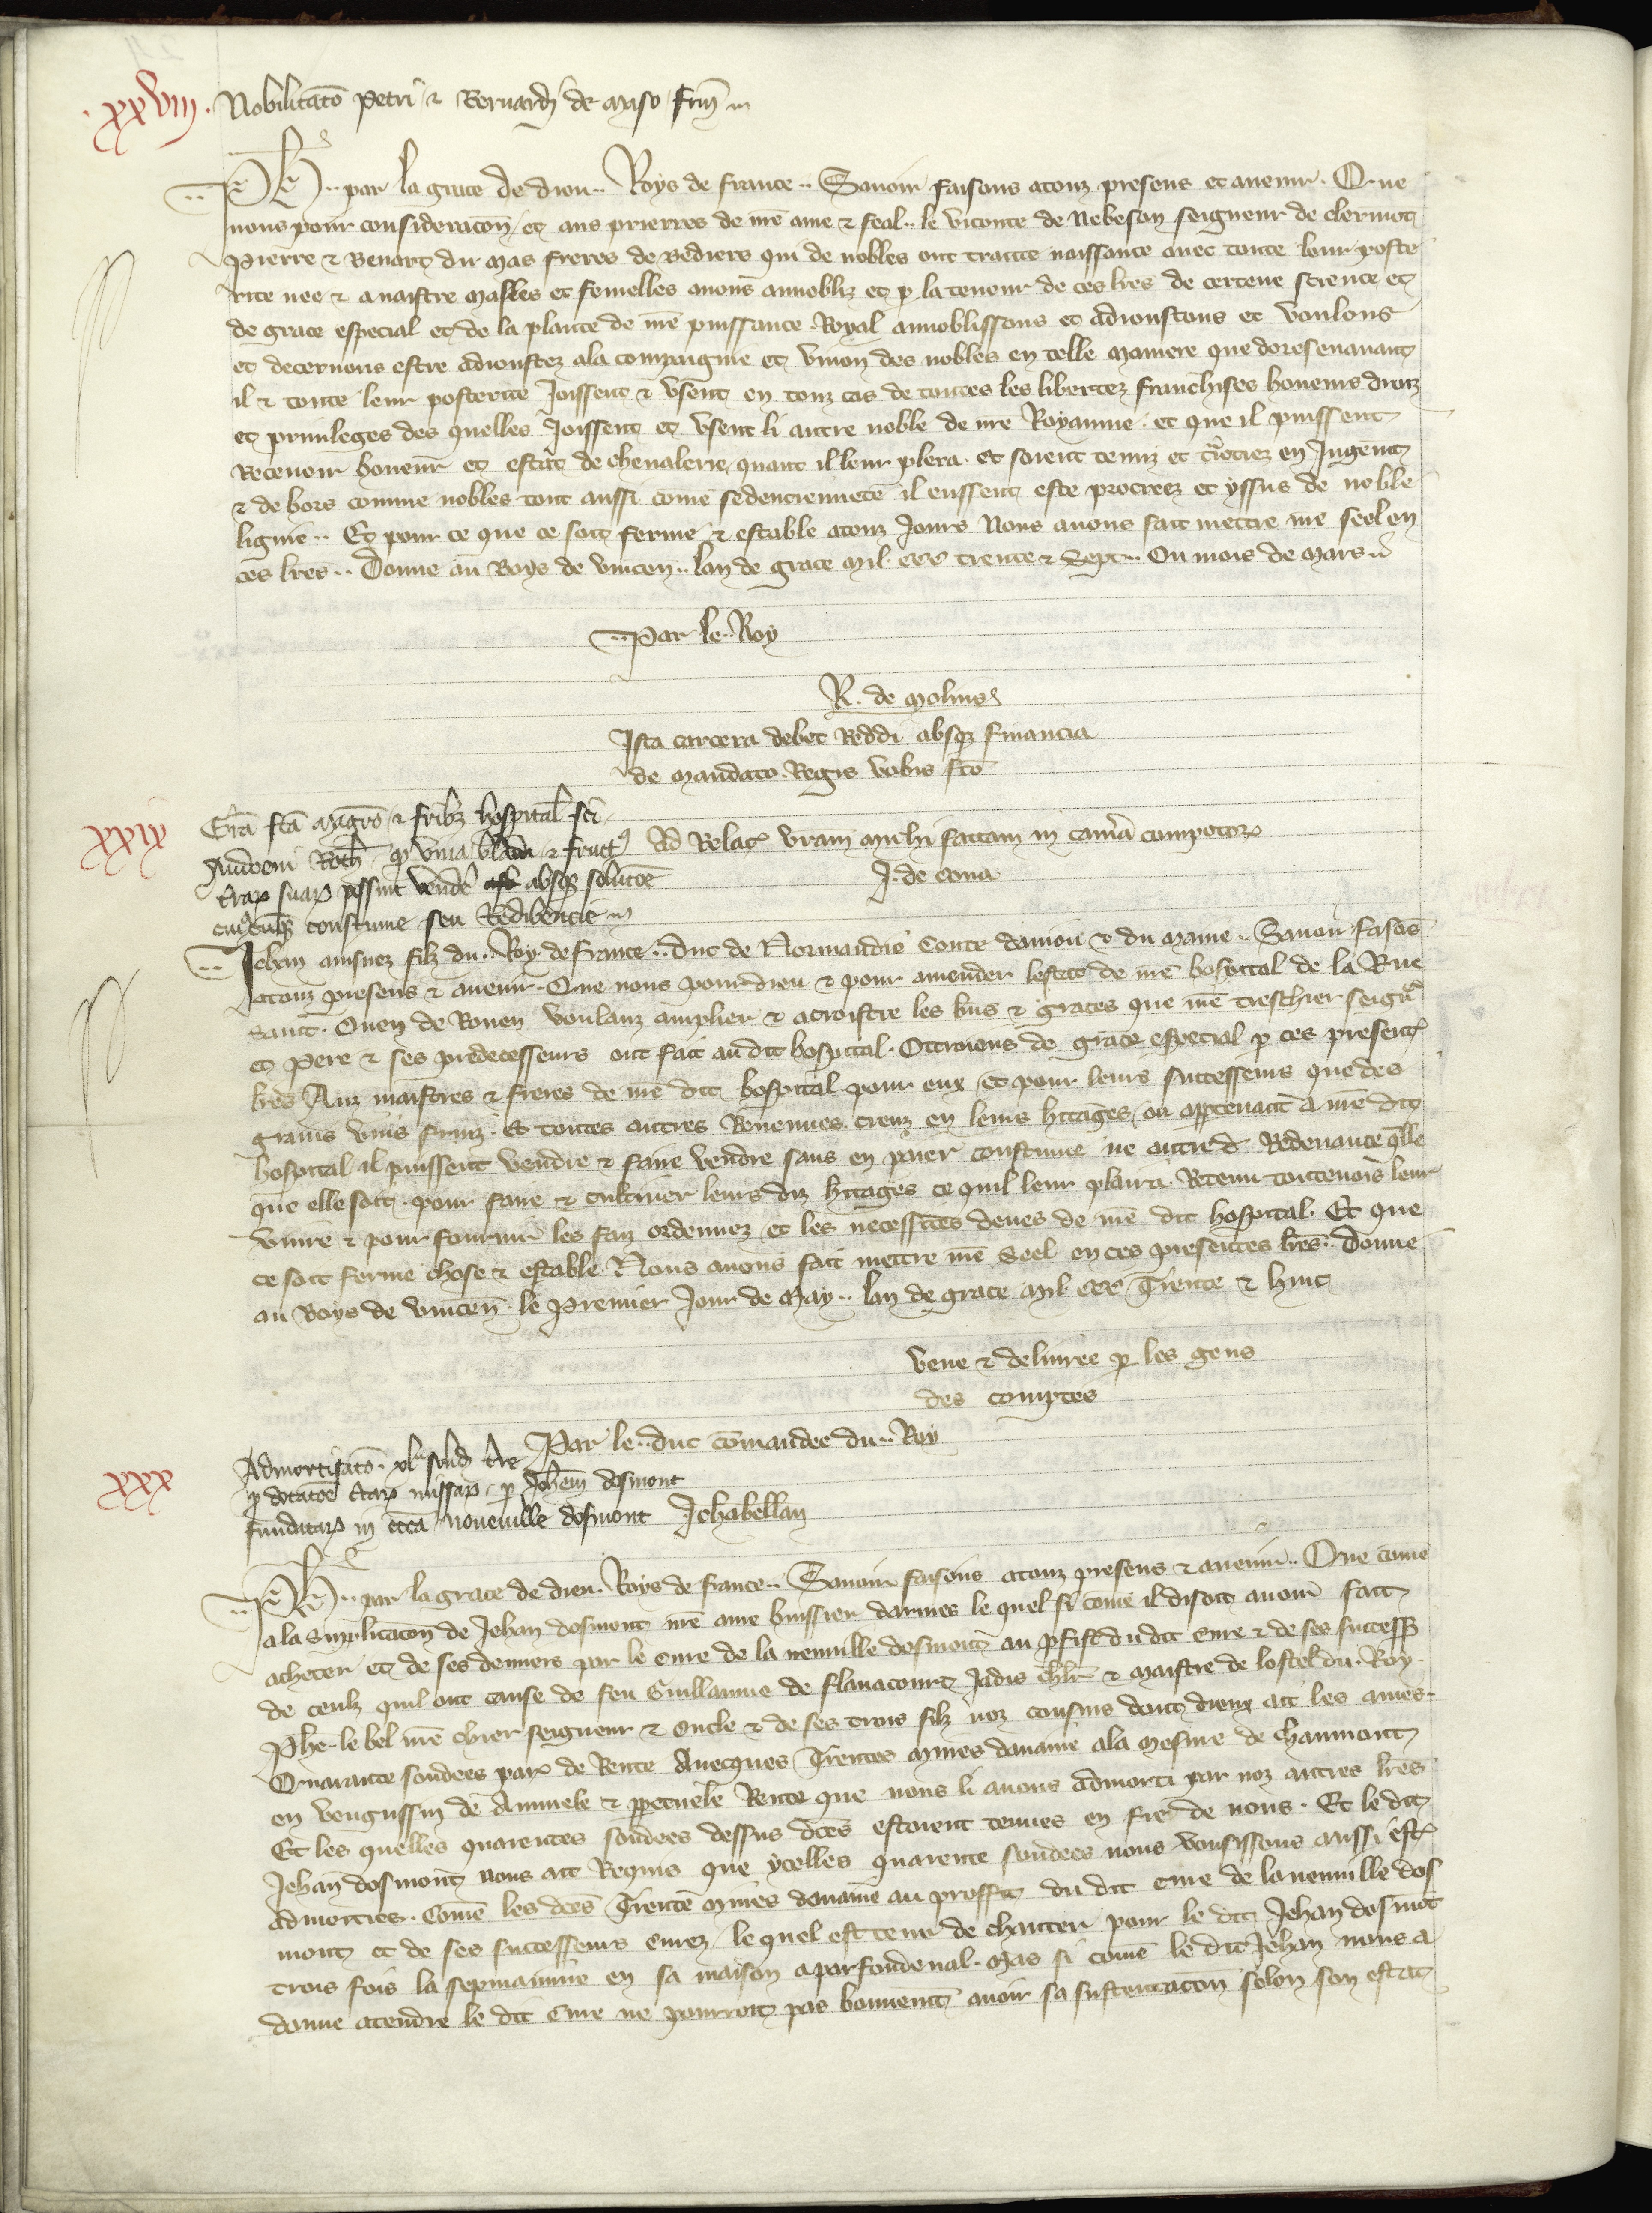 .xxviii. Nobilitatō Petri ⁊ Bernardi de Maso frm̄
Ph̄e .. par la grace de dieu .. Roys de france .. Savoir faisons a touz presens et avenir . Que
nous pour consideracōn et aus prierres de nr̄e ame ⁊ feal .. le viconte de Nebeson seigneur de clermot
Pierre ⁊ Benart du Mas freres de Bediers qui de nobles ont traitte naissance avec toute leur poste
rite nee ⁊ a naistre masles et femelles avons annobliz et p la teneur de ces lr̄es de certene science et
de grace especial et de la plante de nr̄e puissance Royal annoblissons et adioustons et voulons
et decernons estre adioustez a la compaignie et vnion des nobles en telle maniere que doresenavant
il ⁊ toute leur posterite joissent ⁊ vsent en touz cas de toutes les libertez franchises honeurs droiz
et privileges des quelles joissent et vsent li autre noble de nr̄e Royaume . et que il puissent
Recevoir honeur et estat de chevalerie quant il leur plera . Et soient tenuz et traitiez en Jugent
⁊ de hors comme nobles tout aussi com̄e se denciennete il eussent este procreez et yssus de noble
lignie .. Et pour ce que ce soit ferme ⁊ estable a touz jours Nous avons fait mettre nr̄e seel en
ces lr̄es .. Donne au Boys de vincen̄ .. lan de grace mil. ccc trente ⁊ Sept .. Ou mois de mars
.. Par le .. Roy
R. de Molins
Ista cartera debet Reddi absqz financia
de mandato Regis vobis fc̄o
xxix Grā fc̄a magrō ⁊ frībz hospital sc̄i
Audoeni Roth̄ . q vina blada ⁊ fruct⁹ Ad Relac̄ vram michi factam in camā compotoꝝ
trāꝝ suaꝝ possint vendē absqz solucōe J. de cona
cui⁹cūqz coustume seu Redibencie
Jehan ainsnez filz du .. Roy de france .. Duc de Normandie Conte daniou ⁊ du Maine .. Savoir fasōs
a touz presens ⁊ avenir . Que nous pour dieu ⁊ pour amender lestat de nr̄e hospital de la Rue
Saint Ouen de Rouen voulanz amplier ⁊ acroistre les biens ⁊ graces que nr̄e treschier seigr̄
et pere ⁊ ses predecesseurs ont fait au dit hospital . Ottroions de grace especial p ces present
lr̄es Auz maistres ⁊ freres de nr̄e dit hospital pour eux et pour leurs successeurs que des
grains vins fruiz . Et toutes autres Revenues creuz en leurs hr̄itages ou appertenant a nr̄e dit
hospital il puissent vendre ⁊ faire vendre sans en paier coustume ne autre Redevance q̄lle
que elle soit . pour faire ⁊ cultiver leurs diz hr̄itages ce quil leur plaira . Retenu toutevois leur
vivre ⁊ pour fournir les faiz ordennez et les necessites deues de nr̄e dit hospital . Et que
ce soit ferme chose ⁊ estable . Nous avons fait mettre nr̄e Seel en ces presentes lr̄es .. Donne
au Boys de vincen̄ . le Premier Jour de May .. lan de grace mil ccc Trente ⁊ huit
veue ⁊ delivree p les gens
des comptes
Par le .. duc com̄andee du .. Roy
xxx Admortisatō . xl sold tre
p dotacōe ctaꝝ missaꝝ . p Joh̄em dosmont
fundataꝝ in ecc̄a novevillē dosmont Jehabellan
Ph̄e .. par la grace de dieu . Roys de france .. Savoir faisons a touz presens ⁊ avenir .. Que com̄e
a la supplicacōn de Jehan dosmont nr̄e ame huissier darmes le quel si com̄e il disoit avoir fait
acheter et de ses deniers par le Cure de la neuville dosmont au p̄fist du dit Cure ⁊ de ses success
de ceulz quil ont cause de feu Guillaume de flavacourt jadis ch̄lr̄ ⁊ maistre de lostel du . Roy .
Ph̄e .. le bel nr̄e chier seigneur ⁊ Oncle ⁊ de ses trois filz noz cousins dont dieux ait les ames .
Quarante soudees par de Rente Avecques Trentes mines davaine a la mesure de chaumont
en veuguessin de Annuele ⁊ ppetuele Rente que nous li avons admorti par noz autres lr̄es
Et les quelles quarentes soudees dessus dc̄es estoient tenues en fie de nous . Et le dit
Jehan dosmont nous ait Requis que ycelles quarente soudees nous vousissons aussi est
admorties . Com̄e les dc̄es Trente mines davaine au proffit du dit cure de la neuville dos
mont et de ses successeurs Curez le quel est tenu de chanter pour le dit Jehan dosmōt
trois fois la sepmainne en sa maison a parfondeval . Mas si com̄e le dit Jehan nous a
donne atendre le dit Cure ne pourroit pas bonnemt avoir sa sustentacōn selon son estat